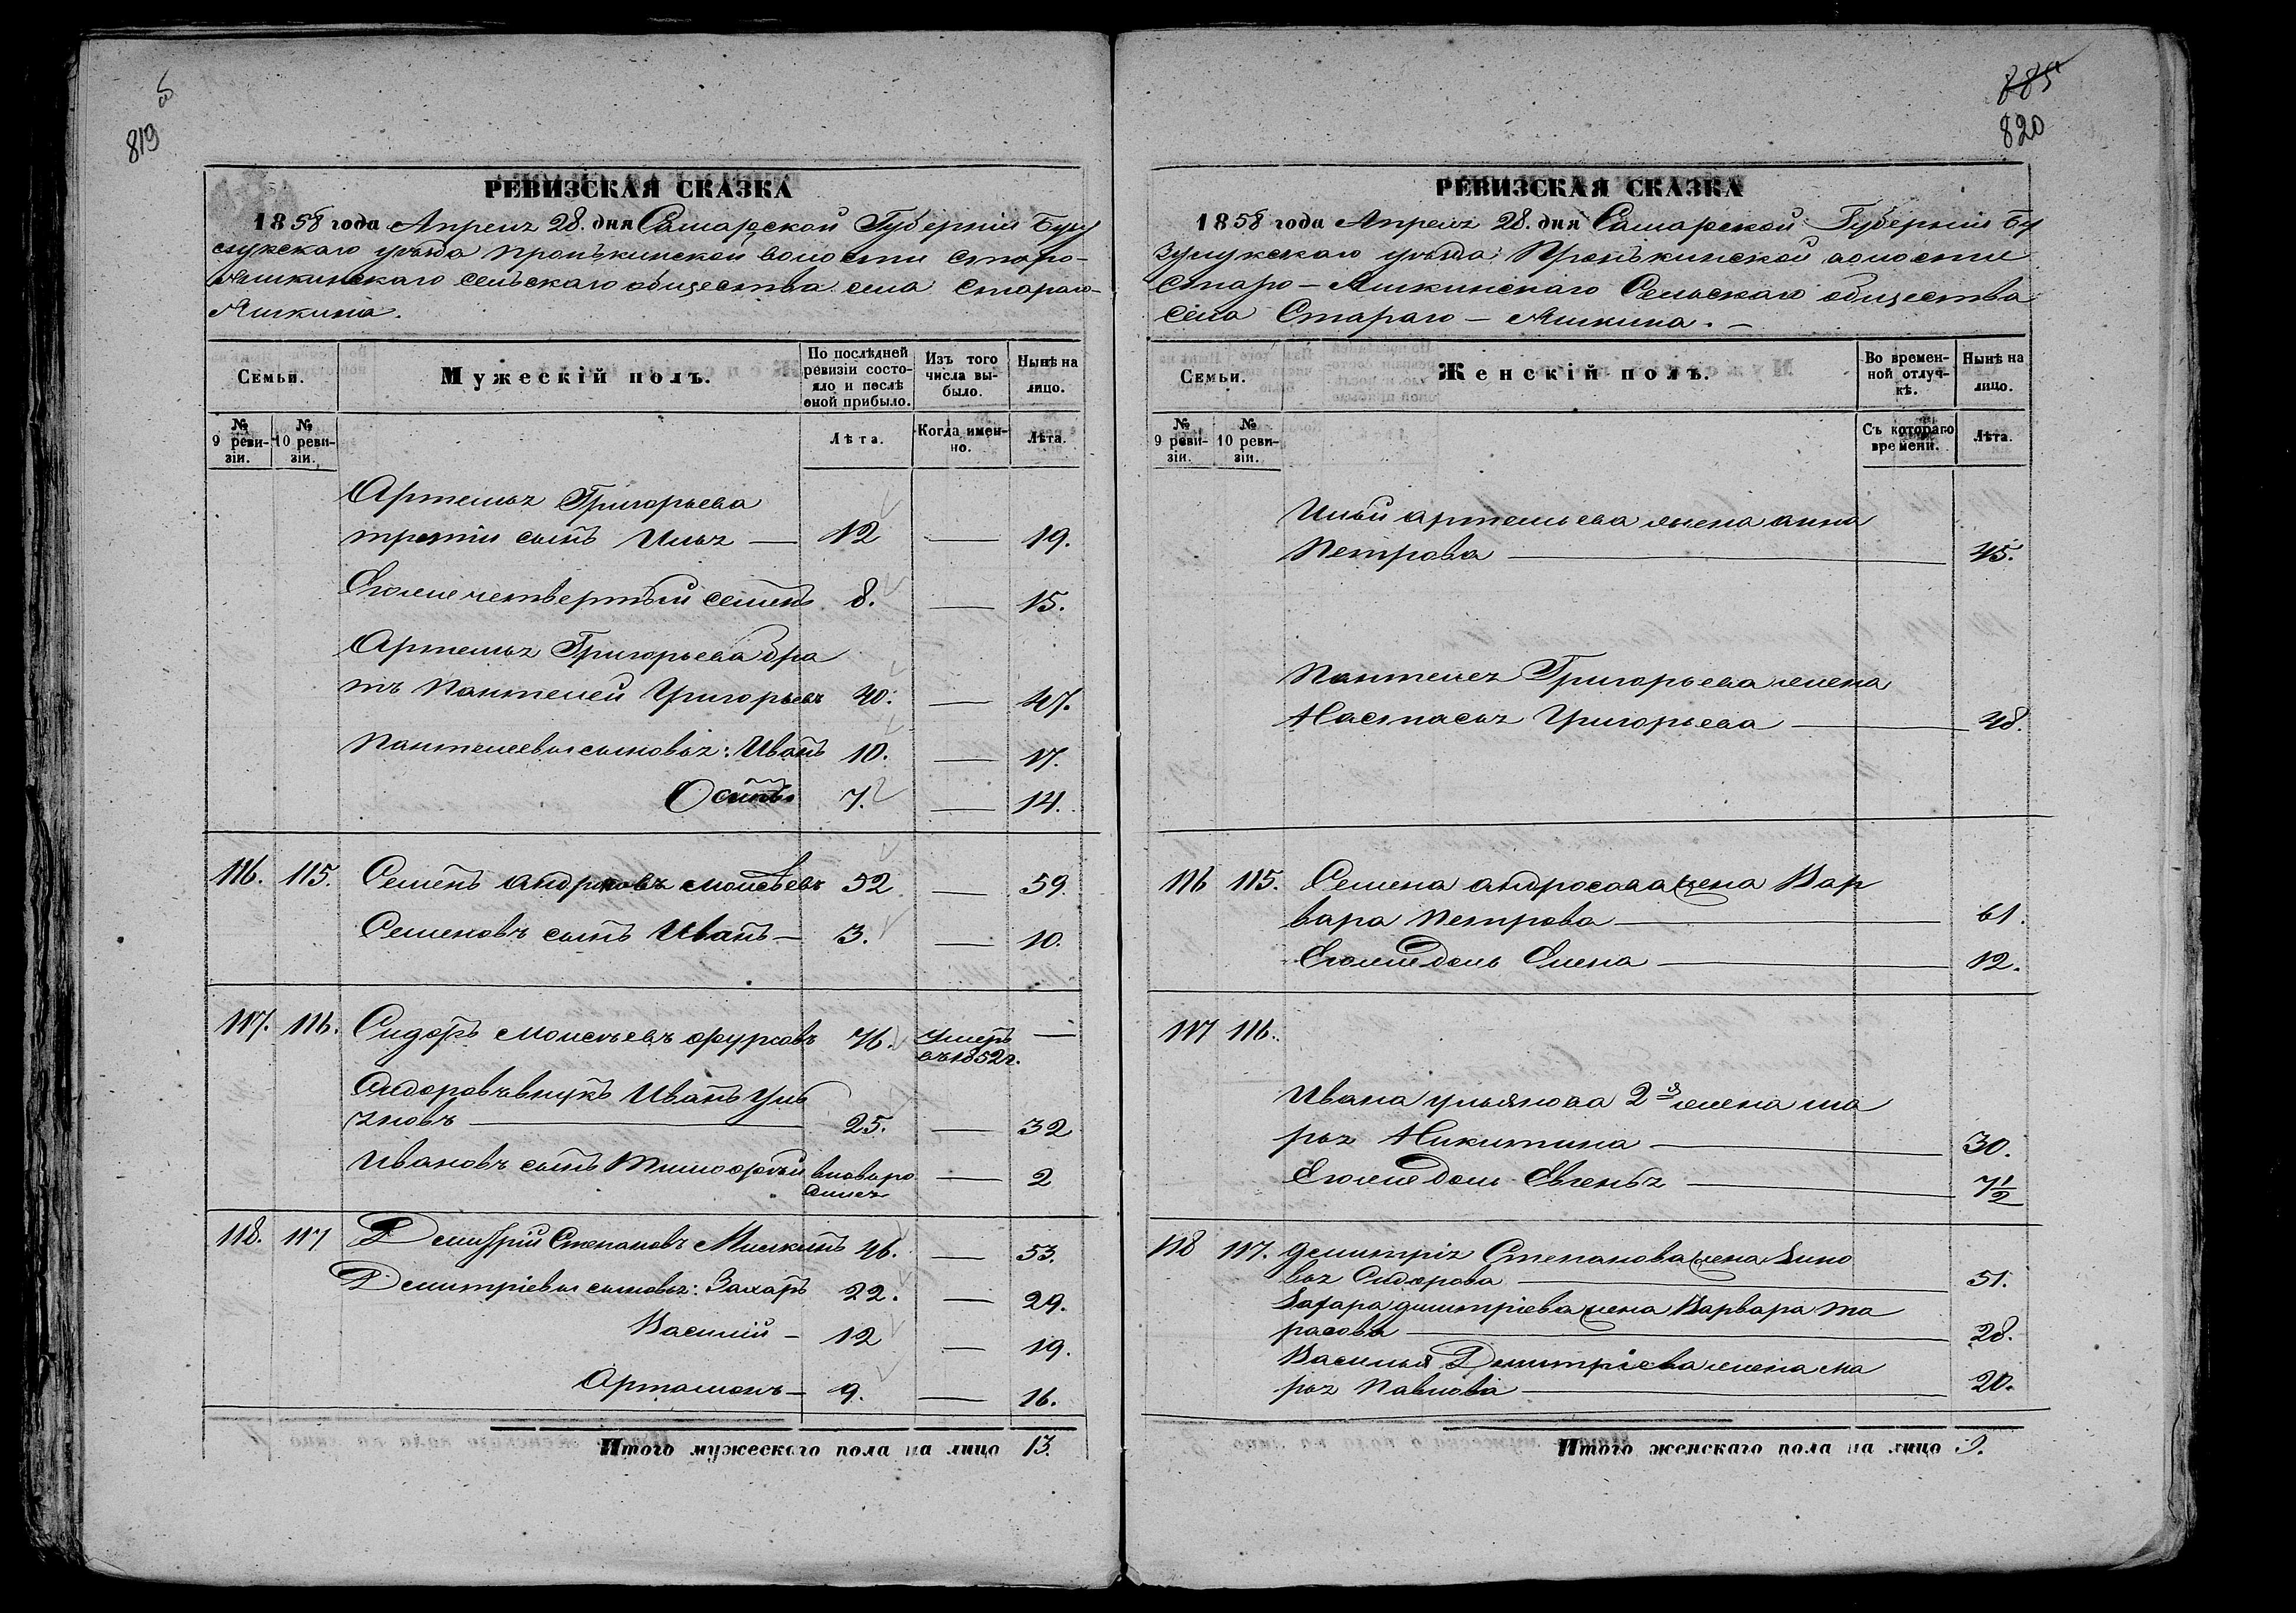 819
РЕВИЗСКАЯ СКАЗКА
1858 года Апреля 28. дня Самарской Губернiи Бузу
лукскаго уѣзда Пронькинской волости Старо-
Яшкинскаго сельскаго общества села Стараго-
Яшкина.
Семьи.
Мужескiй полъ.
По послѣдней ревизiи состояло и послѣ оной прибыло.
Изъ того числа выбыло.
Нынѣ на лицо.
№ 9 ревизiи.
№ 10 ревизiи.
Лѣта.
Когда именно.
Лѣта.
Артемья Григорьева
третiй сынъ Илья — 12 — 19.
Егоже четвертый Семенъ 8. — 15.
Артемья Григорьева бра
тъ Пантелей Григорьевъ 40. — 47.
Пантелеевы сыновья: Иванъ 10. — 17.
7. — 14.
116. 115. Семенъ Моисѣевъ 52 — 59.
Семеновъ сынъ Иванъ — 3. — 10.
117. 116. Сидоръ Моисѣевъ 76. Умеръ —
въ 1852 г.
Сидоровъ внукъ Иванъ Уль
яновъ — 25. — 32
Ивановъ сынъ Тимофѣй вновьро — 2
118. 117 Дмитрiй Степановъ 46. — 53.
Дмитрiевы сыновья: Захаръ 22. — 29.
Василiй — 12 — 19.
Артамонъ — 9. — 16.
Итого мужескаго пола на лицо 13.
885
820
РЕВИЗСКАЯ СКАЗКА
1858 года Апреля 28. дня Самарской Губернiи Бу
зулукскаго уѣзда Пронькинской волости
Старо-Яшкинскаго Сельскаго общества
села Стараго-Яшкина. —
Семьи.
Женскiй полъ.
Во временной отлучкѣ.
Нынѣ на лицо.
№ 9 ревизiи.
№ 10 ревизiи.
Съ котораго времени.
Лѣта.
Ильи Артемьева жена Анна
Петрова — 45.
Пантелея Григорьева жена
Настасья Григорьева — 48.
116 115. Семена Андросова жена Вар
вара Петрова — 61.
Егоже дочь Елена — 12.
117 116.
Ивана Ульянова 2я жена Ма
рья Никитина — 30.
Егоже дочь Евгенья — 7½
118 117. Дмитрiя Степанова жена Зино
вья Сидорова — 51.
Захара Дмитрiева жена Варвара Та
расова — 28.
Василья Дмитрiева жена Ма
рья Павлова — 20.
Итого женскаго пола на лицо 9.